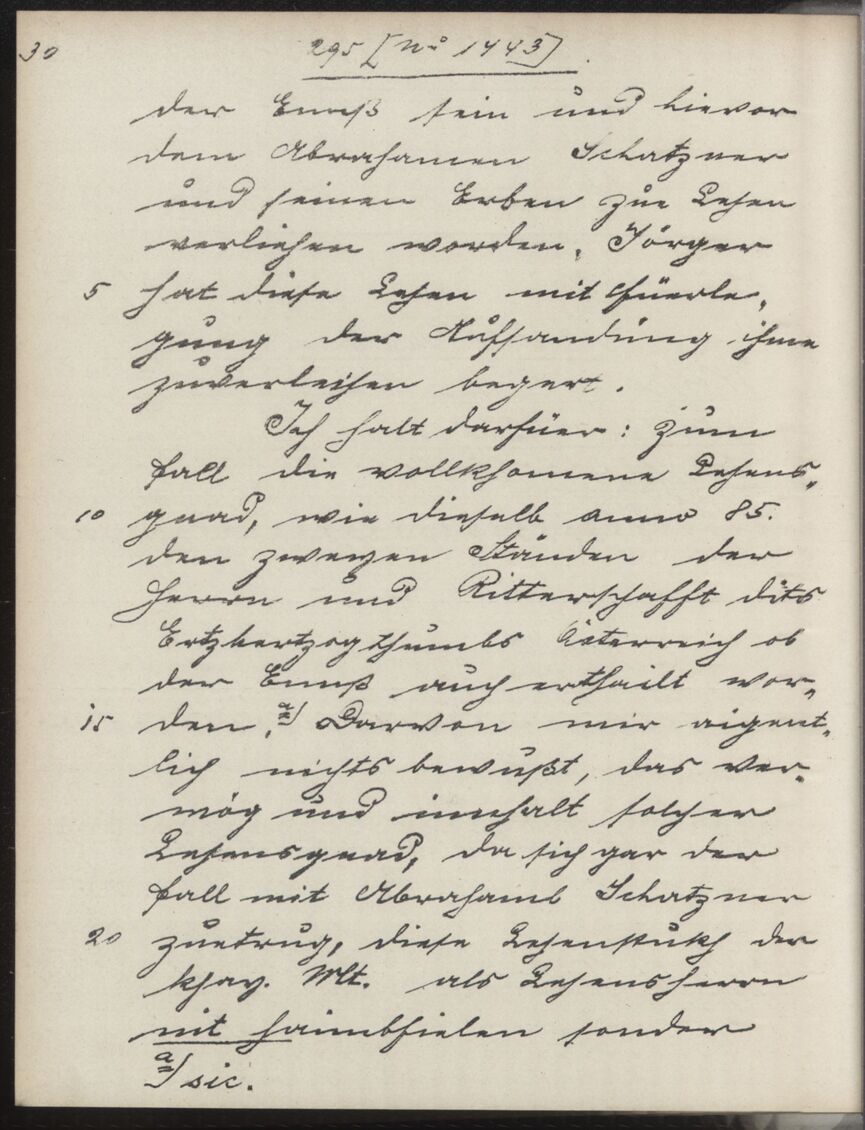 30
295 [No 1443]
der Ennß sein und hievor
dem Abrahamen Schatzner
und seinen Erben zue Lehen
verliehen worden. Jörger
5 hat diese Lehen mit füerle„
gung der Aufsandung ihme
zuverleihen begert.
Ich halt darfüer: zum
fall die vollkhomene Lehens„
10 gnad, wie dieselb anno 85.
den zweyen Ständen der
Herrn und Ritterschafft dits
Ertzhertzogthumbs Österreich ob
der Ennß auch erthailt wor„
15 den, a) Darvon mir aigent„
lich nichts bewußt, das ver„
mög und innhalt solcher
Lehensgnad, da sich gar der
fall mit Abrahamb Schatzner
20 zuetrug, diese Lehenstukh der
khay. Mt. als Lehensherrn
nit haimbfielen sonder
a) sic.